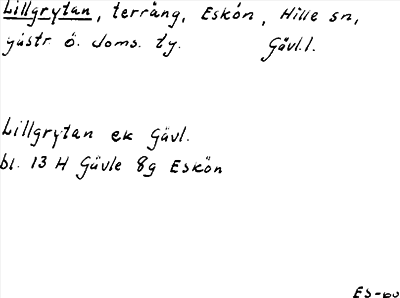 Lillgrytan, terräng, Eskön, Hille sn,
gästr ö. doms. ty. Gävl.l.
Lillgrytan ek Gävl.
bl. 13 H Gävle 8g Eskön